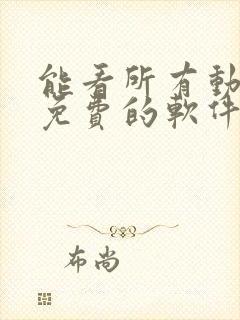 能看所有動
免費的軟件
布尚